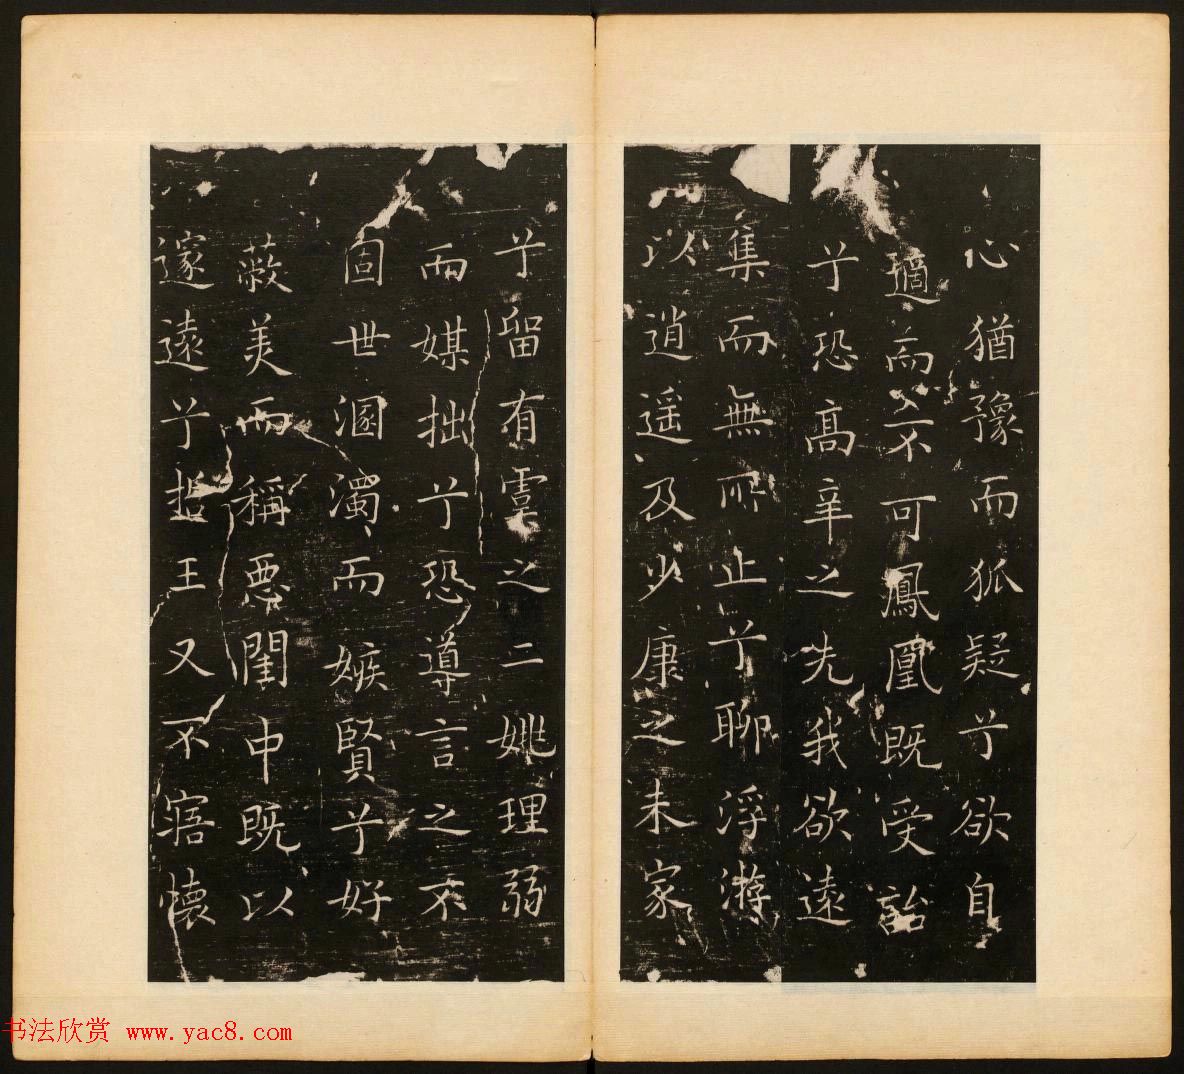 心猶豫而狐疑兮欲自
適而不可鳳凰既受詒
兮恐高辛之先我欲遠
集而無所止兮聊浮游
以逍遥及少康之未家
兮留有虞之二姚理弱
而媒拙兮恐導言之不
固世溷濁而嫉賢兮好
蔽美而稱惡閨中既以
邃遠兮哲王又不寤懷
书法欣赏 www.yac8.com